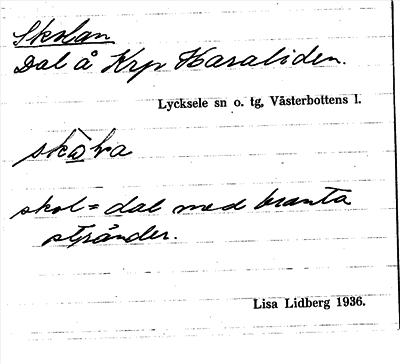 Skolan
Dal å Krp Haraliden.
Lycksele sn o. tg, Västerbottens l.
skol= dal med branta
stränder.
Lisa Lidberg 1936.